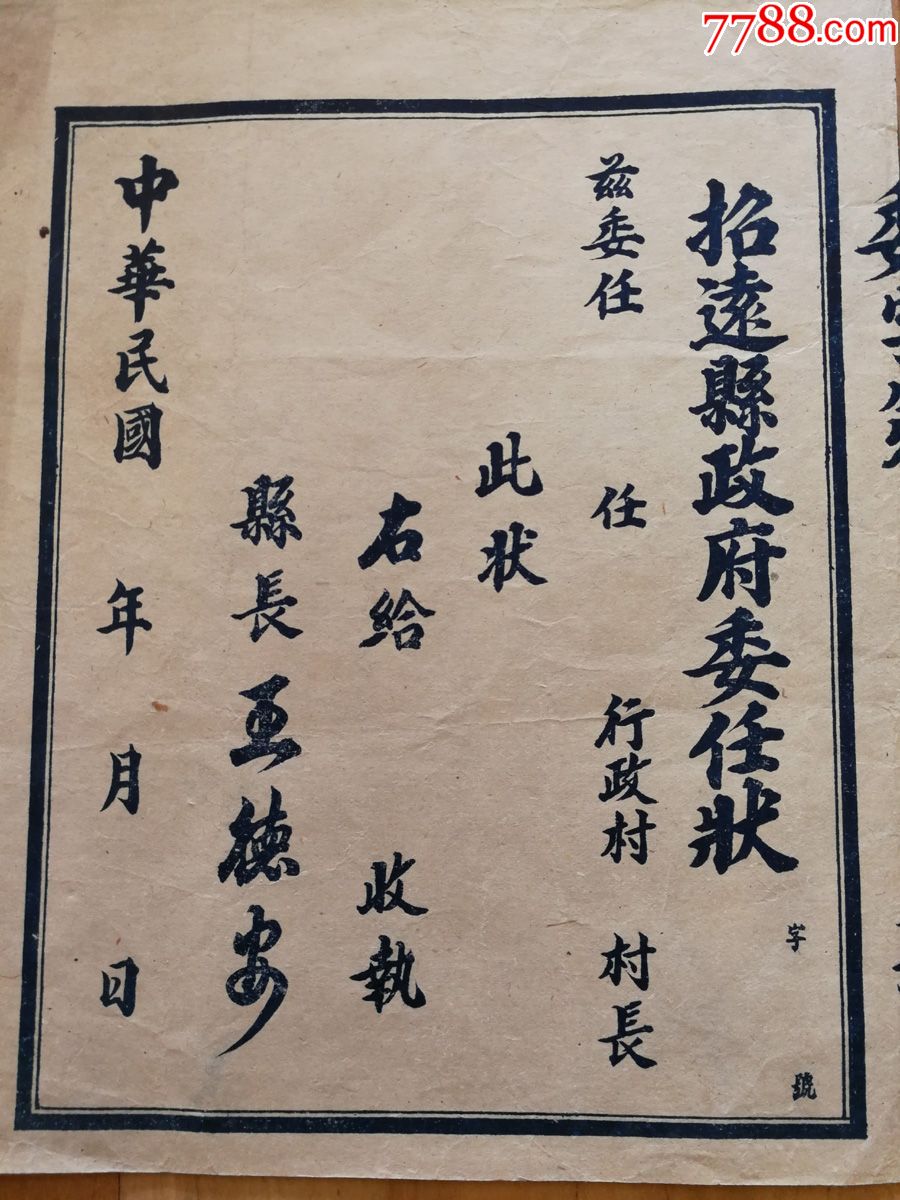 7788.com
招遠縣政府委任狀
字 號
兹委任 任 行政村 村長
此状
右給 收執
縣長王德安
中華民國 年 月 日